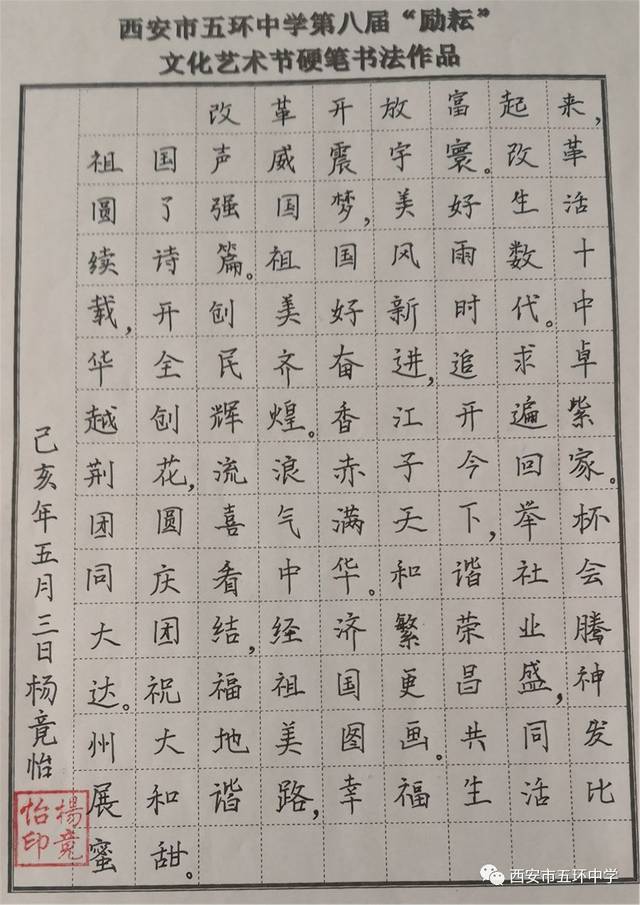 西安市五环中学第八届“励耘”
文化艺术节硬笔书法作品
改革开放富起来,
祖国声威震宇寰。改革
圆了强国梦,美好生活
续诗篇。祖国风雨数十
载,开创美好新时代。中
华全民齐奋进,追求卓
越创辉煌。香江开遍紫
荆花,流浪赤子今回家。
团圆喜气满天下,举杯
同庆看中华。和谐社会
大团结,经济繁荣业腾
达。祝福祖国更昌盛,神
州大地美图画。共同发
展和谐路,幸福生活比
蜜甜。
己亥年五月三日杨竟怡
楊竟
怡印
西安市五环中学